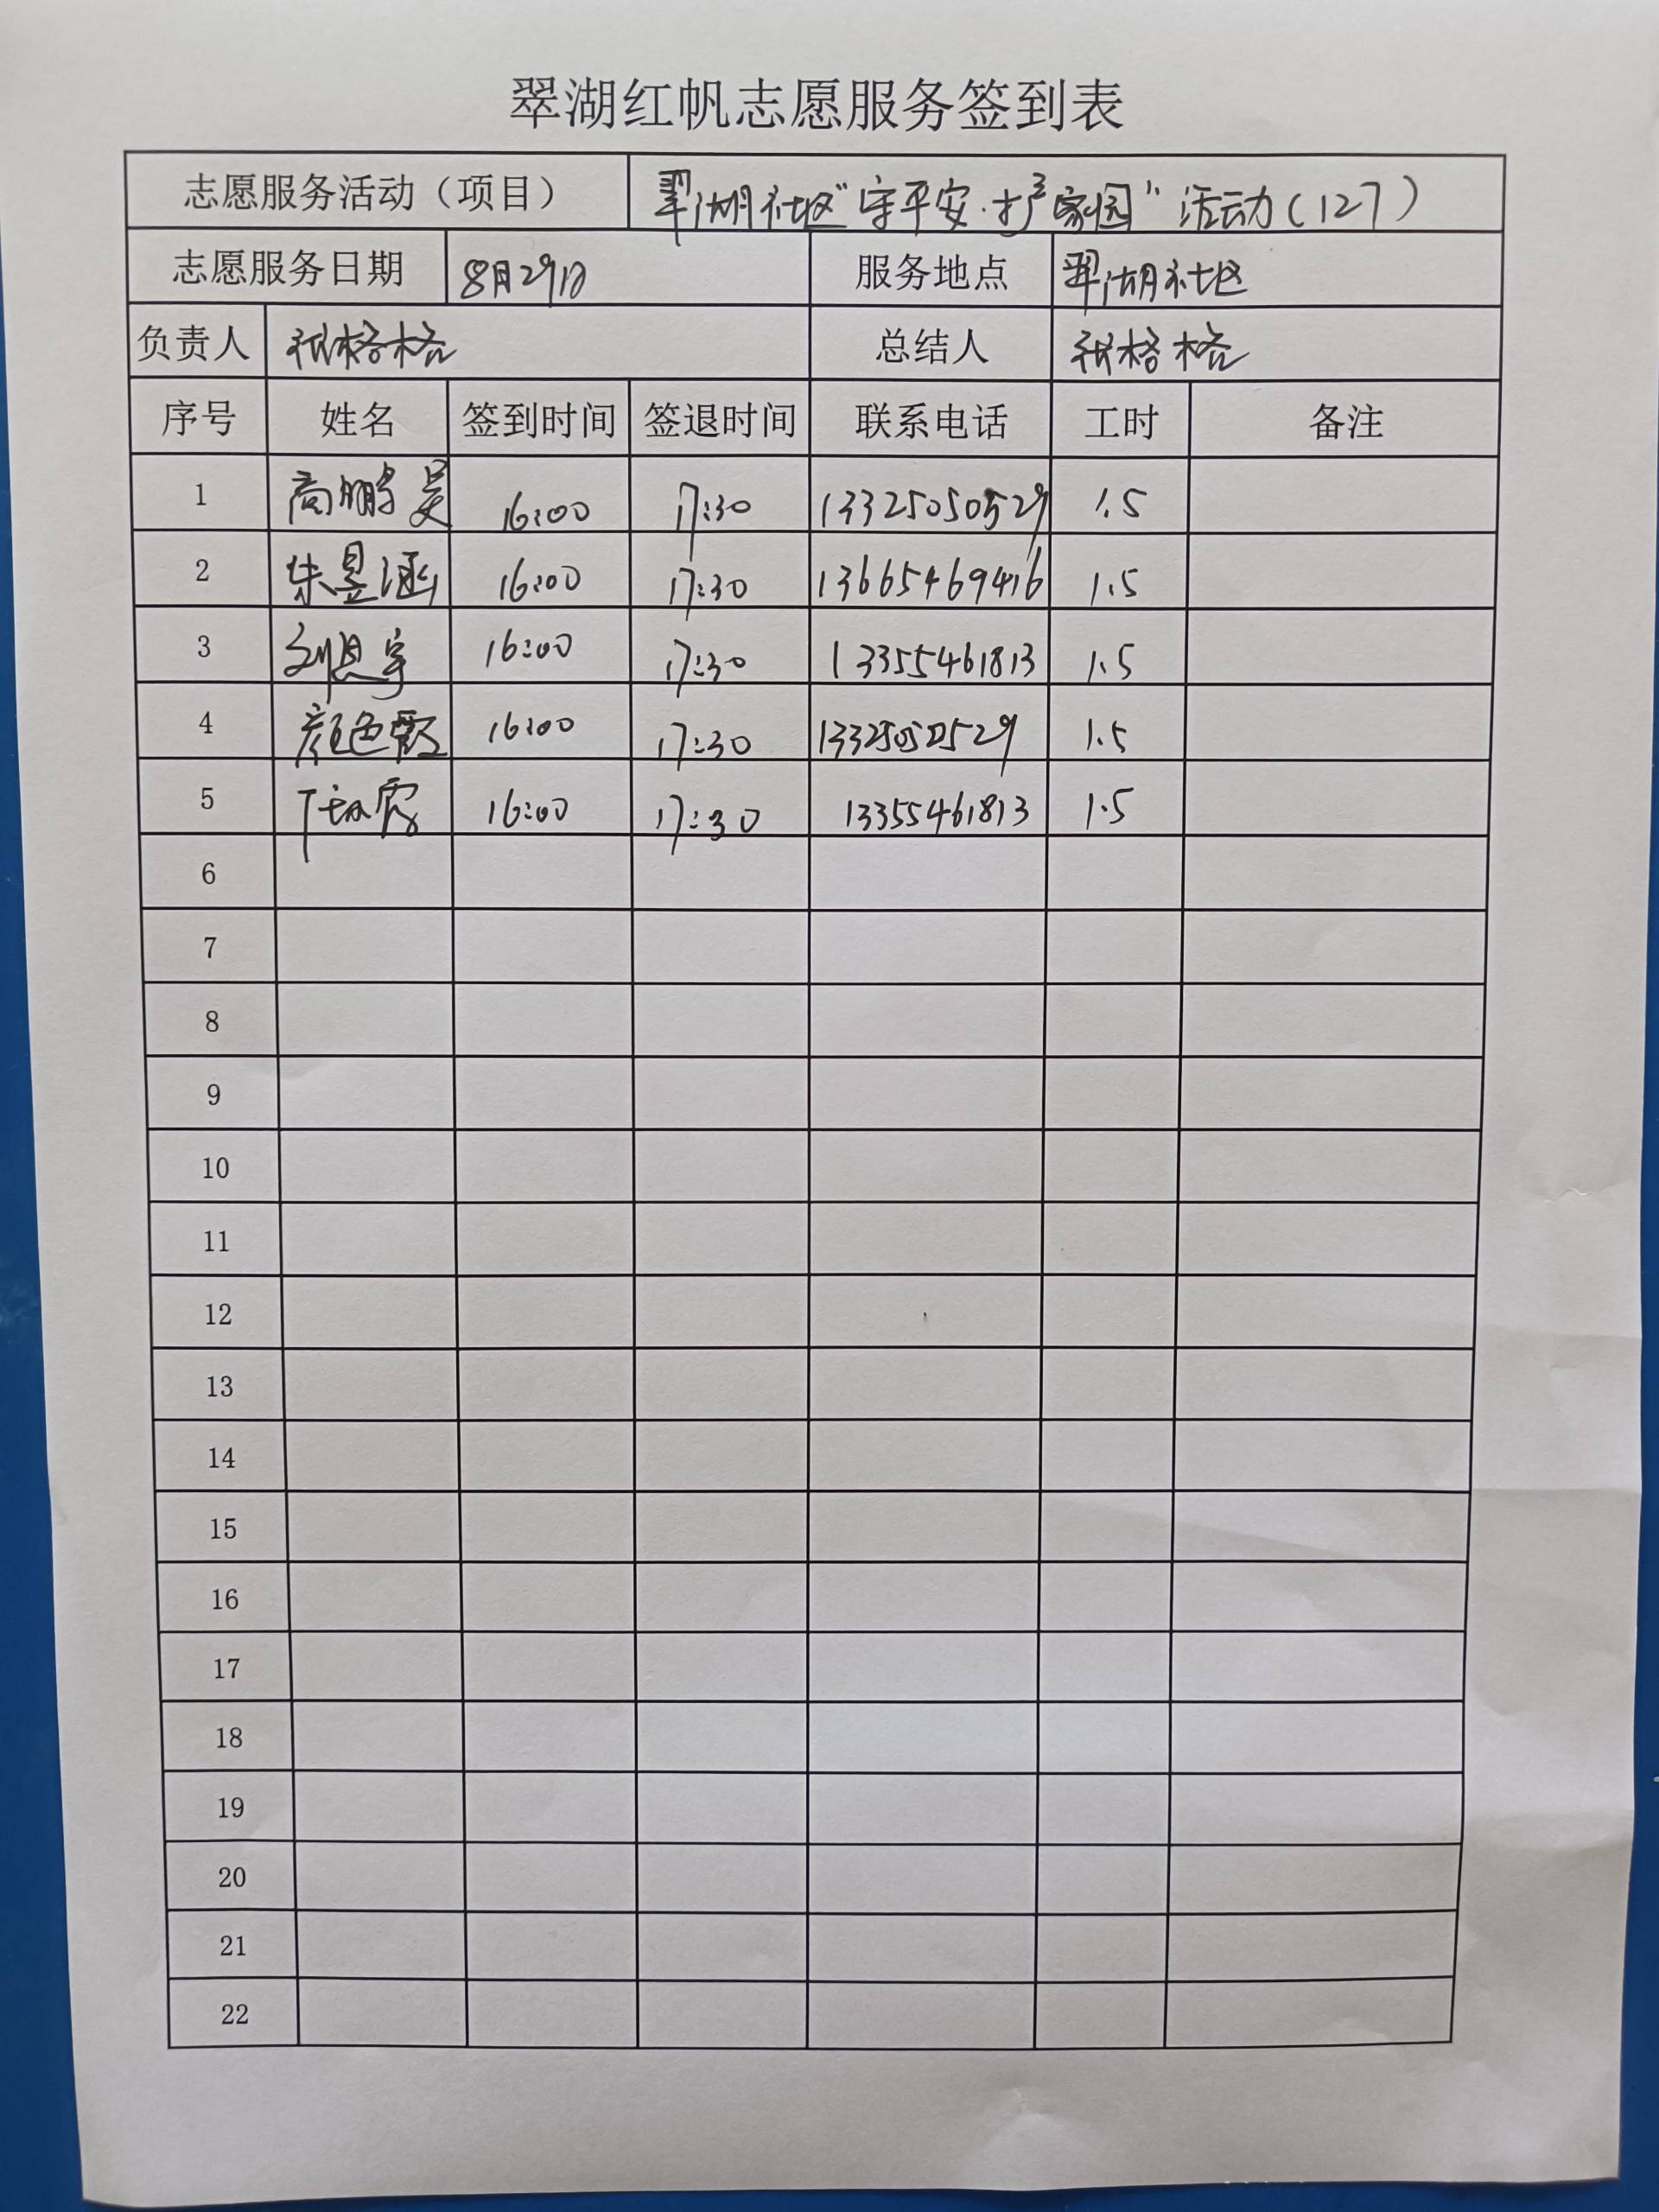 翠湖红帆志愿服务签到表
志愿服务活动（项目） 翠湖社区“守平安·护家园”活动(127)
志愿服务日期 8月29日 服务地点 翠湖社区
负责人 格格 总结人 格格
序号 姓名 签到时间 签退时间 联系电话 工时 备注
1 高鹏昊 16:00 17:30 13325050529 1.5
2 朱昱涵 16:00 17:30 13665469416 1.5
3 刘恩宇 16:00 17:30 13355461813 1.5
4 颜色霞 16:00 17:30 13325050529 1.5
5 16:00 17:30 13355461813 1.5
6
7
8
9
10
11
12
13
14
15
16
17
18
19
20
21
22